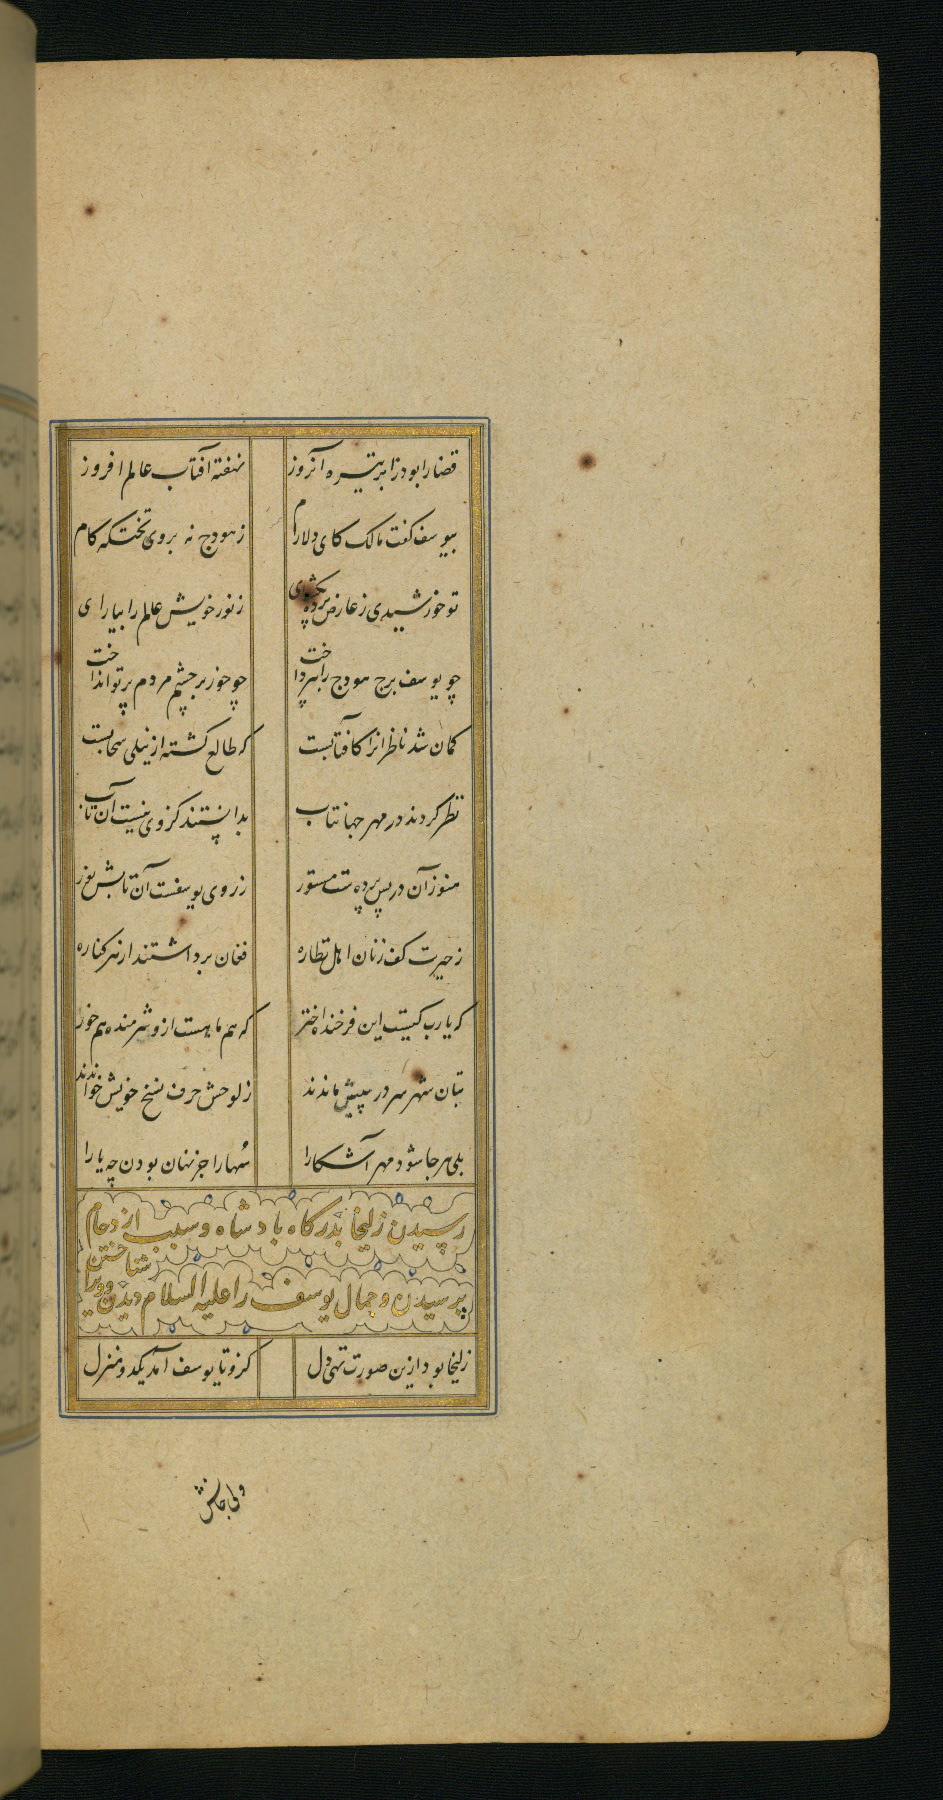 قضا را بود ز ابر تیره آنروز نهفته آفتاب عالم افروز
بیوسف گفت مالک کای دلارام ز هودج نه بروی تختگه کام
تو خورشیدی ز عارض پرده بگشای ز نور خویش عالم را بیارای
چو یوسف برج هودج را بپرداخت چو خور بر چشم مردم پرتو انداخت
کمان شد ناظرانرا کافتابست که طالع گشته از نیلی سحابست
نظر کردند در مهر جهانتاب بدانستند کز وی نیست آن تاب
هنوز آن در پس پرده ست مستور ز روی یوسفست آن تابش نور
ز حیرت کف زنان اهل نظاره فغان برداشتند از هر کناره
که یارب کیست این فرخنده اختر که هم ماهست ازو شرمنده هم خور
بتان شهر سر در پیش ماندند ز لوحش حرف نسخ خویش خواندند
بلی هر جا شود مهر آشکارا سُها را جز نهان بودن چه یارا
رسیدن زلیخا بدرگاه بادشاه و سبب ازدحام
پرسیدن و جمال یوسف را علیه السلام دیدن و ویرا شناختن
زلیخا بود ازین صورت تهی دل کزو تا یوسف آمد یکدو منزل
ولی جانش